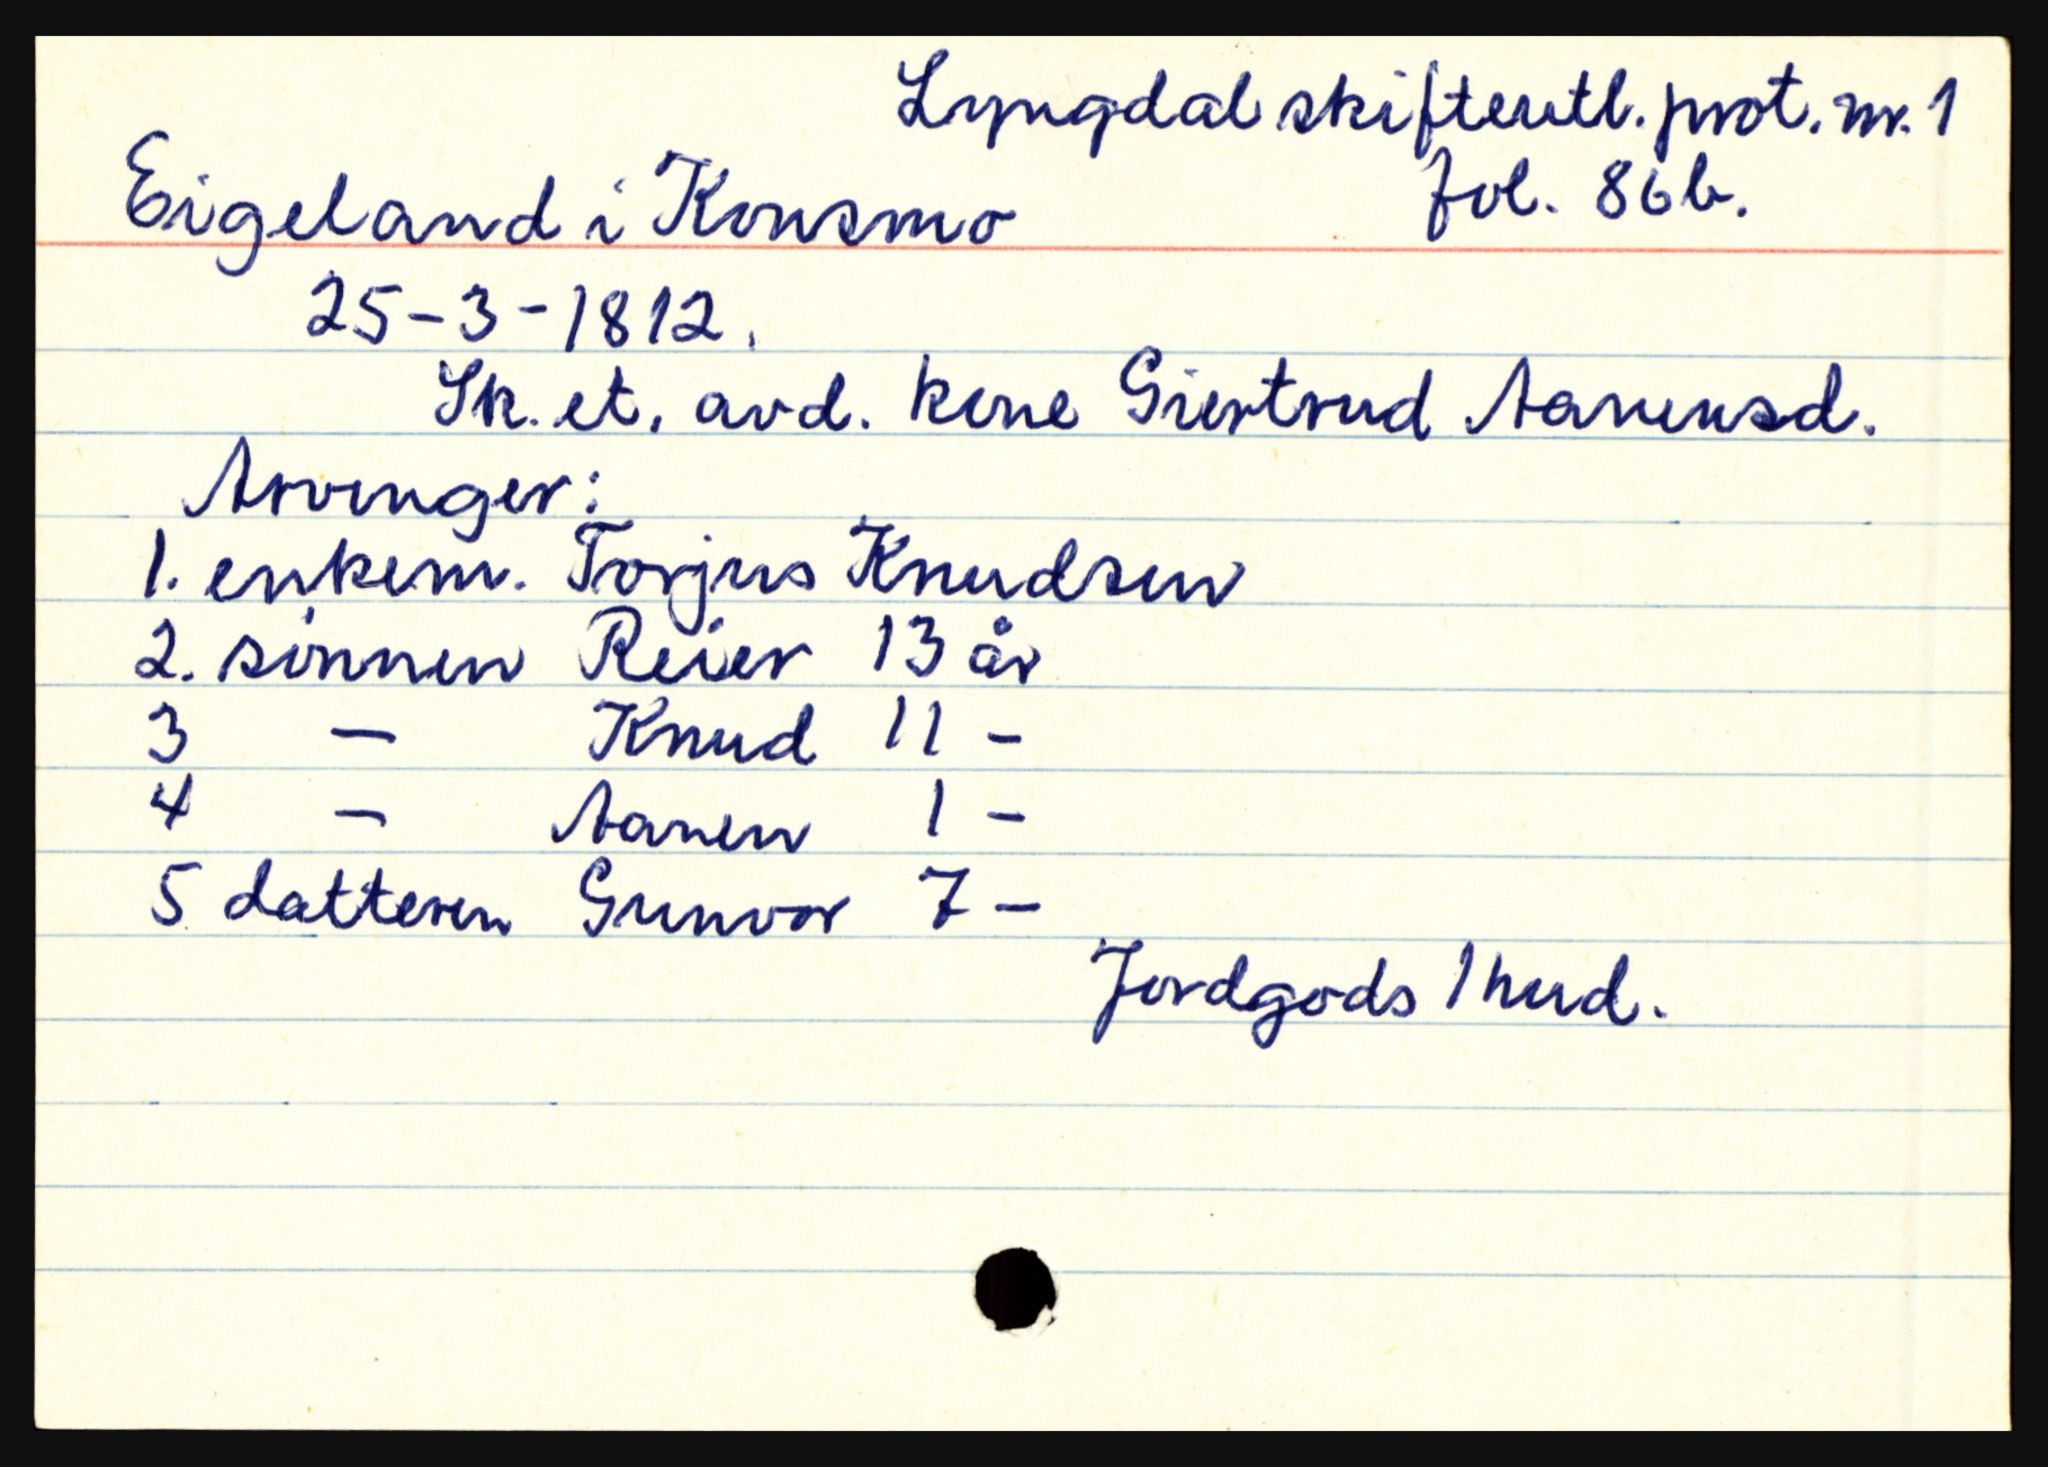 Lyngdal skifteutl. prot. nr. 1
fol. 86b.
Eigeland i Konsmo
25-3-1812.
Sk. et. avd. kone Giertrud Aanensd.
Arvinger:
1. enkem. Torjus Knudsen
2. sønnen Reier 13 år
3 — Knud 11 -
4 — Aanen 1 -
5 datteren Gunvor 7 -
Jordgods 1 hud.